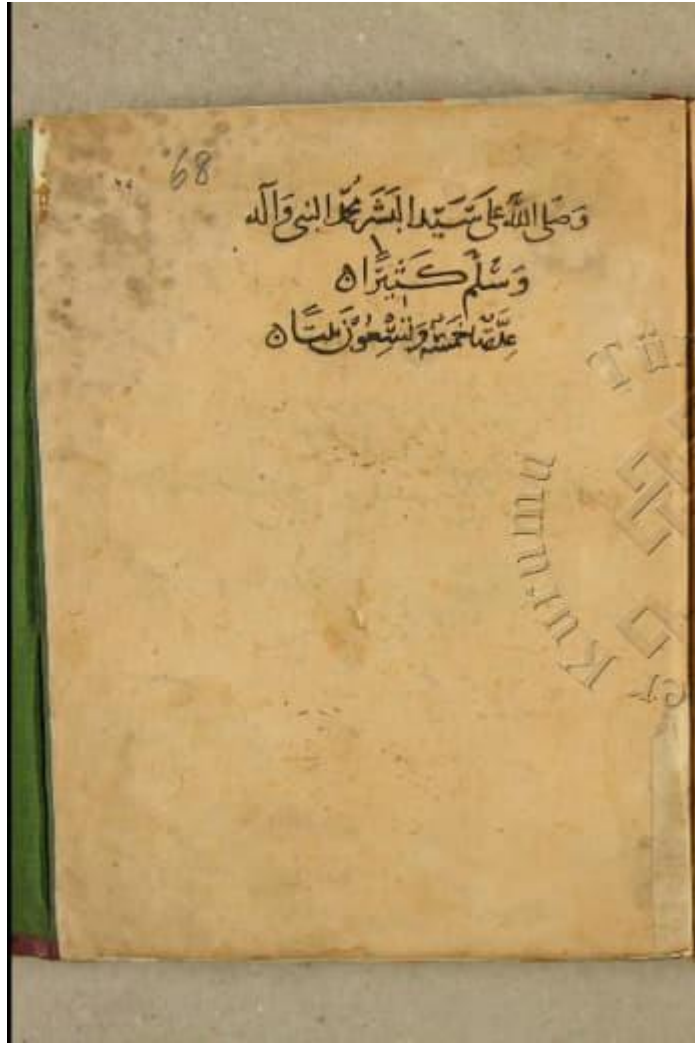 68
وَصَلى اللهُ عَلى سَيِّد البَشَر مُحمَّد النبي وَآله
وَسَلَّم كَثِيرًا
عِدَّتها خمسَة وَتِسْعُون بيتًا